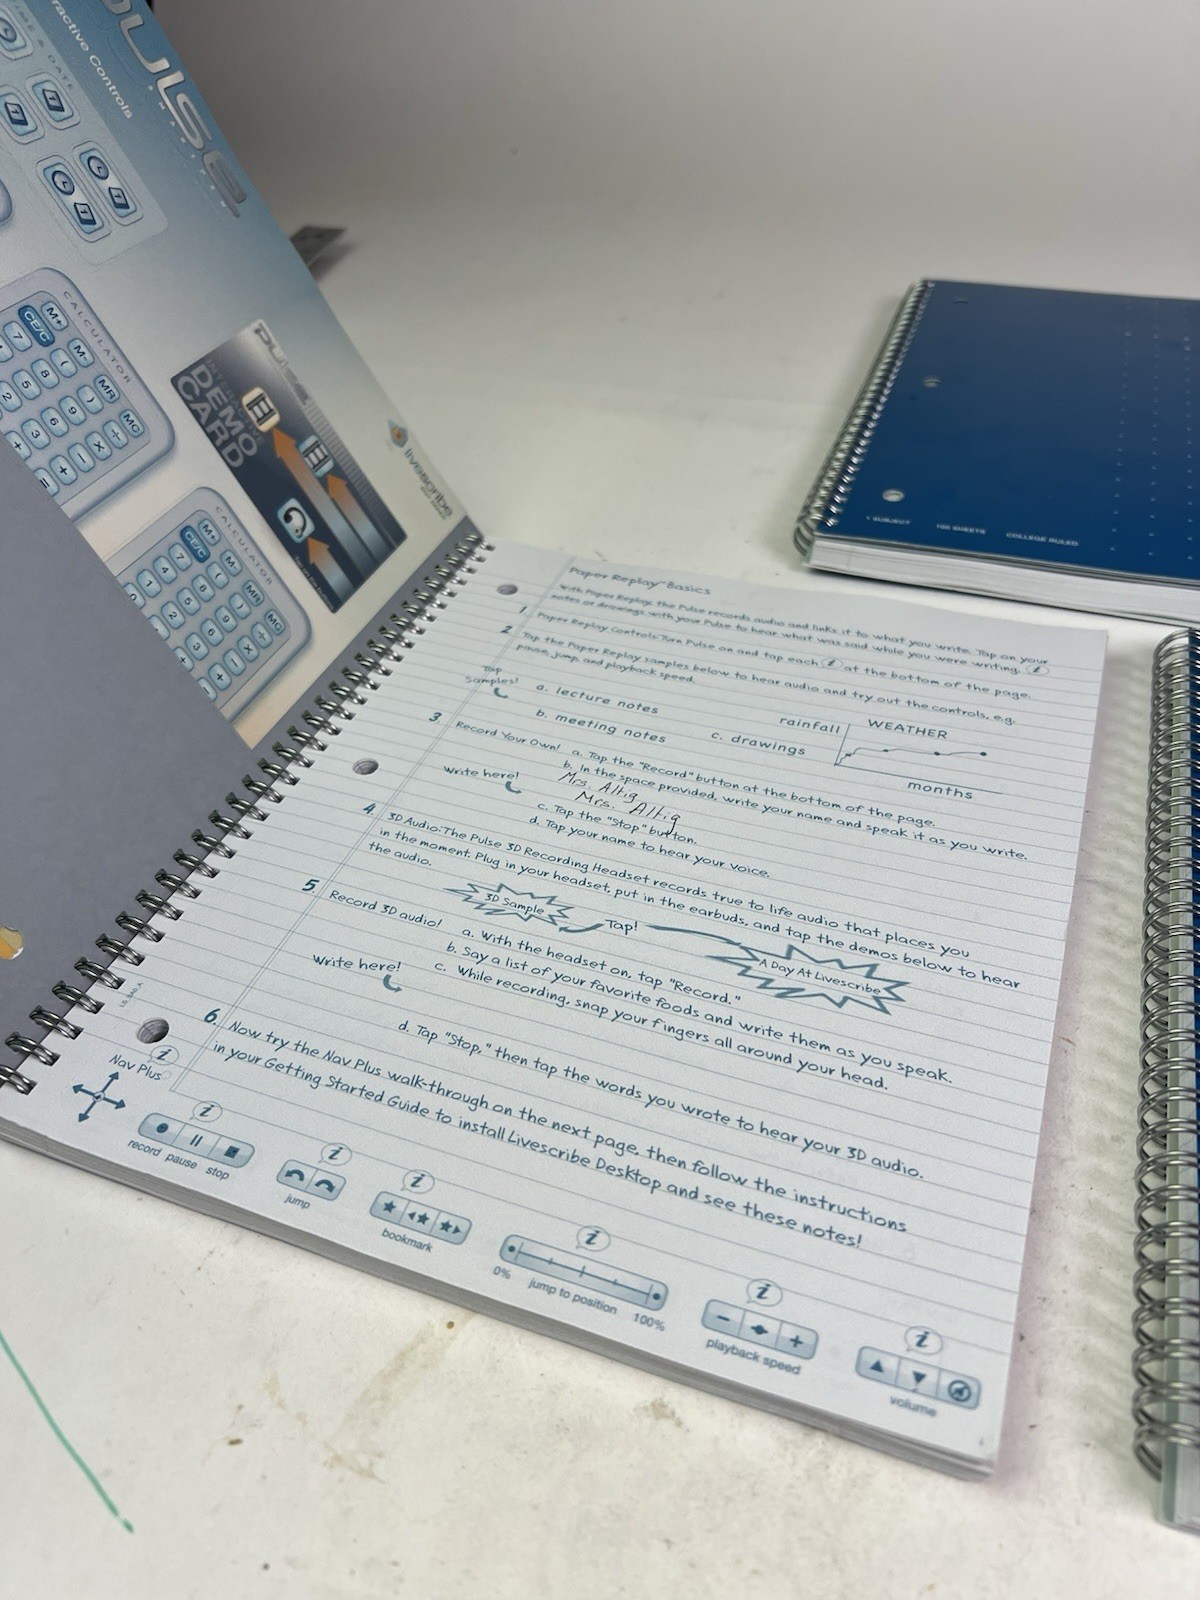 pulse
SMARTPEN
ractive Controls
& DATE
CALCULATOR
M+ M- MR MC
CE/C ( ) ÷
7 8 9 X
5 6 −
2 3 +
=
CALCULATOR
M+ M- MR MC
CE/C ( ) ÷
7 8 9 X
4 5 6 −
1 2 3 +
0
PULSE
DEMO
CARD
livescribe
Paper Replay™ Basics
With Paper Replay, the Pulse records audio and links it to what you write. Tap on your
notes or drawings with your Pulse to hear what was said while you were writing. i
1 Paper Replay Controls: Turn Pulse on and tap each i at the bottom of the page.
2 Tap the Paper Replay samples below to hear audio and try out the controls, e.g.
pause, jump, and playback speed.
Tap
Samples!
a. lecture notes
b. meeting notes
c. drawings
rainfall
WEATHER
months
3 Record Your Own! a. Tap the "Record" button at the bottom of the page.
b. In the space provided, write your name and speak it as you write.
Write here!
Mrs. Altig
Mrs. Altig
c. Tap the "Stop" button.
d. Tap your name to hear your voice.
4. 3D Audio: The Pulse 3D Recording Headset records true to life audio that places you
in the moment. Plug in your headset, put in the earbuds, and tap the demos below to hear
the audio.
3D Sample
Tap!
A Day At Livescribe
5 Record 3D audio!
a. With the headset on, tap "Record."
b. Say a list of your favorite foods and write them as you speak.
c. While recording, snap your fingers all around your head.
Write here!
d. Tap "Stop," then tap the words you wrote to hear your 3D audio.
6. Now try the Nav Plus walk-through on the next page, then follow the instructions
in your Getting Started Guide to install Livescribe Desktop and see these notes!
Nav Plus
i
i
record pause stop
i
jump
i
bookmark
i
0% jump to position 100%
i
− +
playback speed
i
volume
1 SUBJECT 100 SHEETS COLLEGE RULED